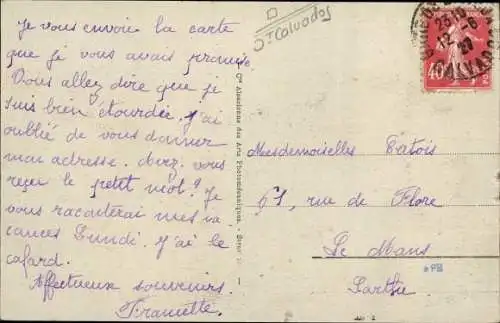 Je vous envoie la carte
que je vous avais promise.
Vous allez dire que je
suis bien étourdie. j'ai
oublié de vous donner
mon adresse. Avez-vous
reçu le petit mot? Je
vous raconterai mes va
cances Lundi. J'ai le
cafard.
Affectueux souvenirs.
Dt Calvados
Cie Alsacienne des Arts Photomécaniques
40
Mesdemoiselles Tatois
61, rue de Flore
Le Mans
Sarthe